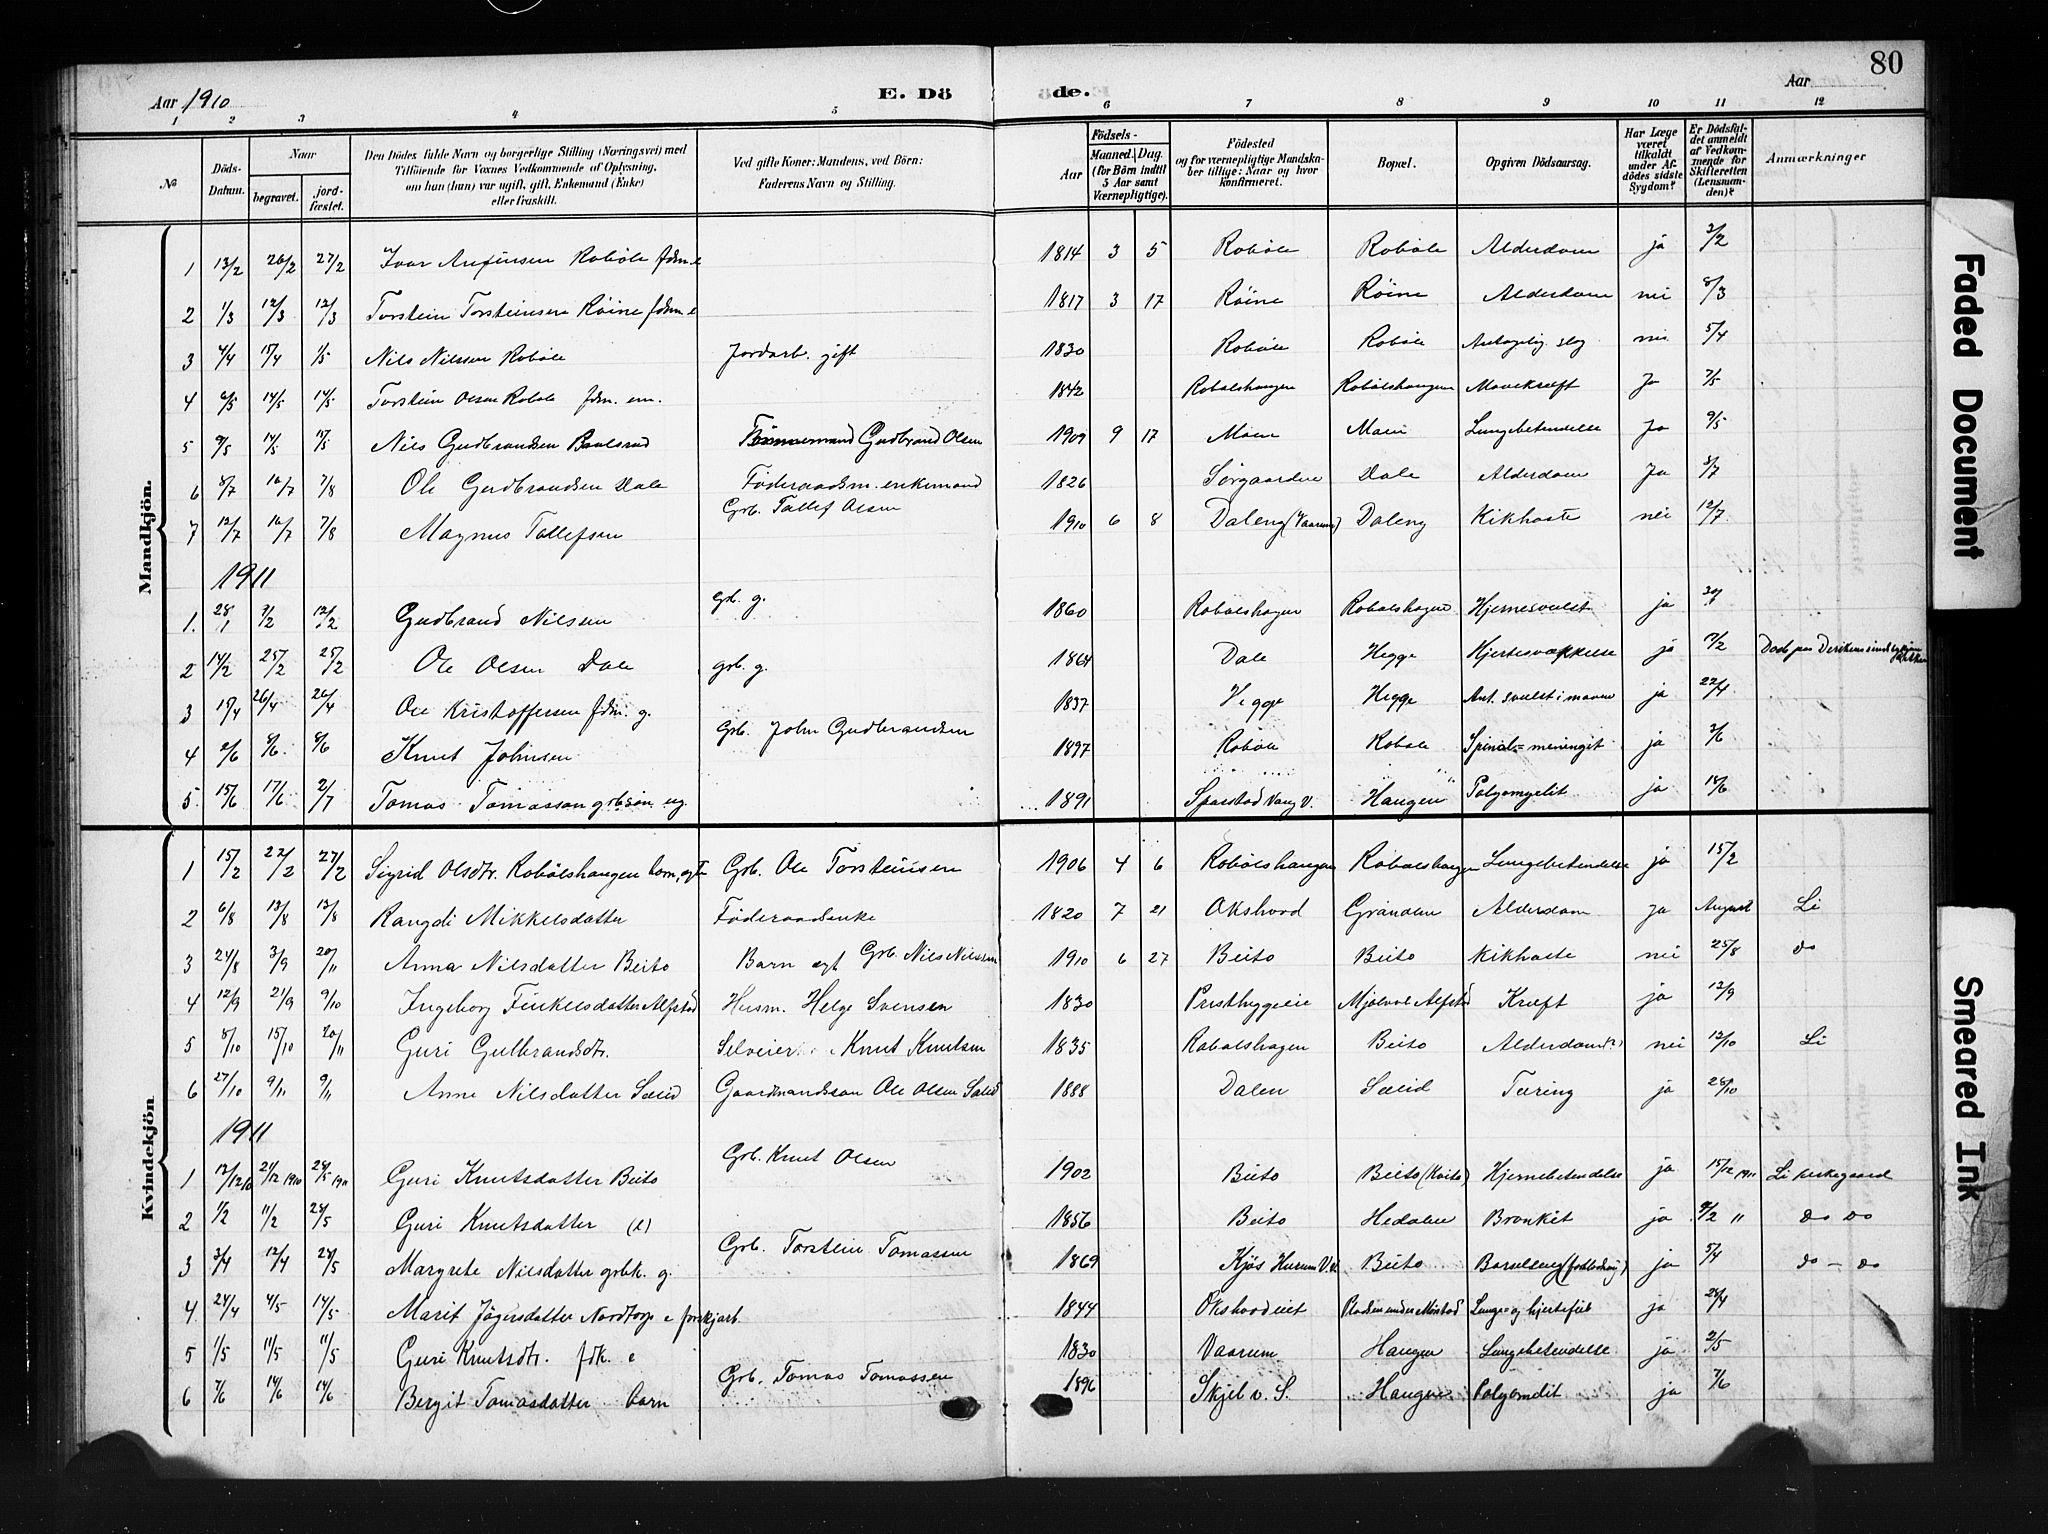 80
Aar 1910 E. Dö de. Aar
1 2 3 4 5 6 7 8 9 10 11 12
№ Döds-Datum. Naar begravet. jord-fæstet. Den Dödes fulde Navn og borgerlige Stilling (Næringsvei) med Tilföiende for Voxnes Vedkommende af Oplysning, om han (hun) var ugift, gift, Enkemand (Enke) eller fraskilt. Ved gifte Koner: Mandens, ved Börn: Faderens Navn og Stilling. Födsels- Aar Maaned. Dag. (for Börn indtil 5 Aar samt Værnepligtige). Födested og for værnepligtige Mandskaber tillige: Naar og hvor konfirmeret. Bopæl. Opgiven Dödsaarsag. Har Læge været tilkaldt under Afdödes sidste Sygdom? Er Dödsfaldet anmeldt af Vedkommende for Skifteretten (Lensmanden)? Anmærkninger
Mandkjön.
1 13/2 26/2 27/2 Ivar Arnfinsen Robøle fdm. e 1814 3 5 Robøle Robøle Alderdom ja 3/2
2 1/3 12/3 12/3 Torstein Torsteinsen Röine fdm. e 1817 3 17 Röine Röine Alderdom nei 8/3
3 4/4 15/4 1/5 Nils Nilssen Robøle Jordarb. gift 1830 Robøle Robøle Antagelig slag nei 5/4
4 6/5 14/5 14/5 Torstein Olsen Robøle fdm. em. 1842 Robølshaugen Robølshaugen Mavekræft Ja 7/5
5 9/5 14/5 14/5 Nils Gudbrandsen Tømmermand Gudbrand Olsen 1909 9 17 Moen Moen Lungebetendelse Ja 9/5
6 8/7 10/7 7/8 Ole Gudbrandsen Dale Føderaadsm. enkemand 1826 Sørgaarden Dale Alderdom Ja 8/7
7 12/7 16/7 7/8 Magnus Tollefsen Grb. Tollef Olsen 1910 6 8 Daleng (Vaarum) Daleng Kikhoste nei 12/7
1911
1. 28/1 7/2 12/2 Gudbrand Nilssen gb. g. 1860 Robølshagen Robølshagen Hjernesvulst ja
2 14/2 25/2 25/2 Ole Olsen Dale grb. g. 1864 Dale Hegge Hjertesvækkelse ja 17/2
3 15/4 26/4 26/4 Ole Kristoffersen fdm. g. 1837 Hegge Hegge Ant. svulst i maven ja 22/4
4 2/6 8/6 8/6 Knut Johnsen Grb. John Gudbrandsen 1897 Robøle Robøle Spinal-meningit ja 3/6
5 15/6 17/6 2/7 Tomas Tomasson grbsøn ug. 1891 Sparstad Vang V. Haugen Polyomyelit ja 18/6
Kvindekjön
1 15/2 22/2 27/2 Sigrid Olsdtr. Robølshaugen barn, egte Grb. Ole Torsteinsen 1906 4 6 Robølshaugen Robølshaugen Lungebetendelse ja 15/2
2 6/8 13/8 13/8 Rangdi Mikkelsdatter Føderaadsenke 1820 7 21 Okshovd Granden Alderdom Ja August Li
3 24/8 3/9 20/11 Anna Nilsdatter Beito Barn egt Grb. Nils Nilssen 1910 6 27 Beito Beito Kikhoste nei 25/8 do
4 12/9 21/9 9/10 Ingeborg Finkelsdatter Alfstad Husm. Helge Svensen 1830 Pristhygeeie Mjølvol Alfstad Kræft ja 13/9
5 8/10 15/10 20/11 Guri Gulbrandsdtr. Selveier Knut Knutsen 1835 Robølshagen Beito Alderdom (?) nei 12/10 Li
6 27/10 9/11 9/11 Anne Nilsdatter Sælid Gaardmandssøn Ole Olsen Sælid 1888 Dalen Sælid Tæring ja 28/10
1911
1 12/12 10 21/12 1910 28/5 1911 Guri Knutsdatter Beito Grb. Knut Olsen 1902 Beito Beito (Kvito) Hjernebetendelse ja 15/12 1911 Li kirkegaard
2 1/2 11/2 28/5 Guri Knutsdatter (l) 1856 Beito Hedalen Bronkit ja 9/2 " do do
3 3/4 12/4 28/5 Margrete Nilsdatter grbk. g. Grb. Torstein Tomassen 1869 Kjös Hurum V. V. Beito Barselseng (forblødning) ja 5/4 do - do
4 24/4 4/5 14/5 Marit Jögersdatter Nordtorp e forskjarb. 1844 Okshovdeiet Pladsen under Mörstad Lunge- og hjertefeil ja 28/4
5 1/5 11/5 11/5 Guri Knutsdtr. fdk. e 1830 Vaarum Haugen Lungebetendelse ja 2/5
6 7/6 14/6 14/6 Bergit Tomasdatter barn Grb. Tomas Tomassen 1896 Skjel v. S. Haugen Polyomelit ja 7/6
Faded Document
Smeared Ink